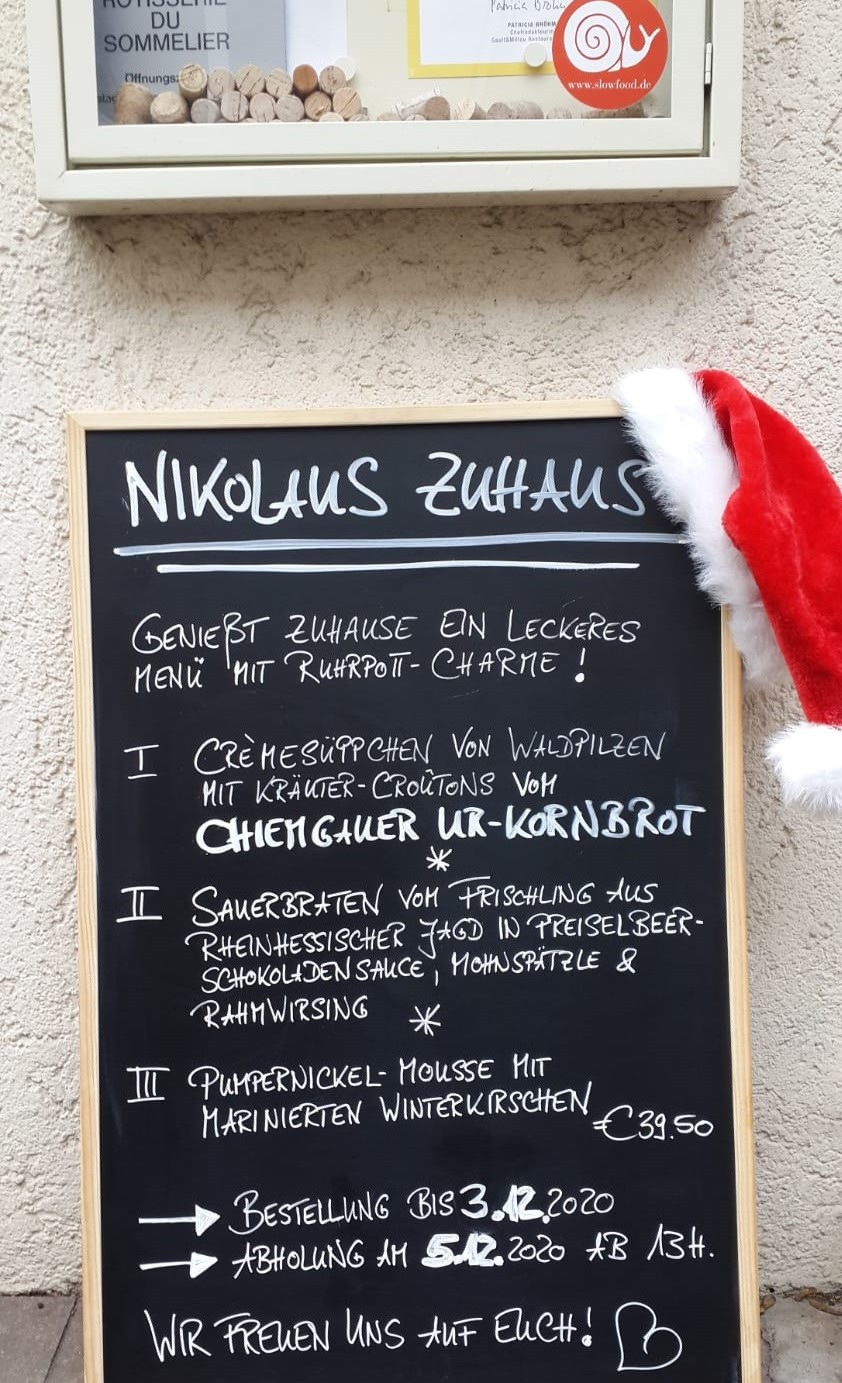 ROTISSERIE
DU
SOMMELIER
PATRICIA BRÖHM
www.slowfood.de
NIKOLAUS ZUHAUS
GENIEßT ZUHAUSE EIN LECKERES
MENÜ MIT RUHRPOTT-CHARME!
I CRÈMESÜPPCHEN VON WALDPILZEN
MIT KRÄUTER-CROÛTONS VOM
CHIEMGAUER UR-KORNBROT
*
II SAUERBRATEN VOM FRISCHLING AUS
RHEINHESSISCHER JAGD IN PREISELBEER-
SCHOKOLADENSAUCE, MOHNSPÄTZLE &
RAHMWIRSING *
III PUMPERNICKEL-MOUSSE MIT
MARINIERTEN WINTERKIRSCHEN
€39.50
→ BESTELLUNG BIS 3.12.2020
→ ABHOLUNG AM 5.12.2020 AB 13H.
WIR FREUEN UNS AUF EUCH!